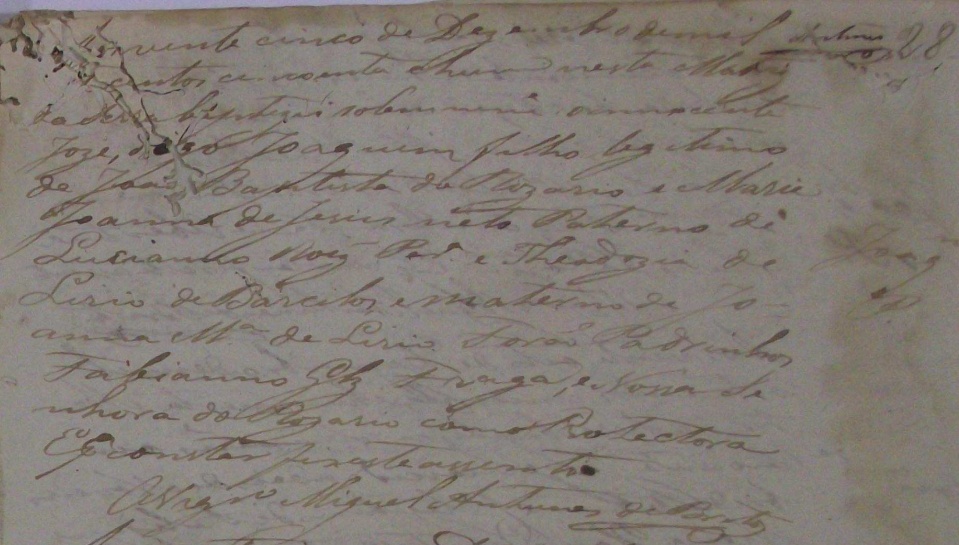 vente cinco de Dezembro de mil
centos cincoenta e hum nesta Matriz
da Serra baptizei solemnemte oinnocente
Joze, digo Joaquim filho legitimo
de João Baptista do Rozario e Maria
Joanna de Jesus neto Paterno de
Lucianno Roiz e Theodozia de
Lirio de Barcelos, e materno de Jo-
anna Ma de Lirio Forão Padrinhos
Fabianno Glz Fraga, e Nossa Se
nhora do Rozario como Protectora
E pa constar fis este assento
O Vigro Miguel Antunes de Britto
Antunes
28
Joaqm